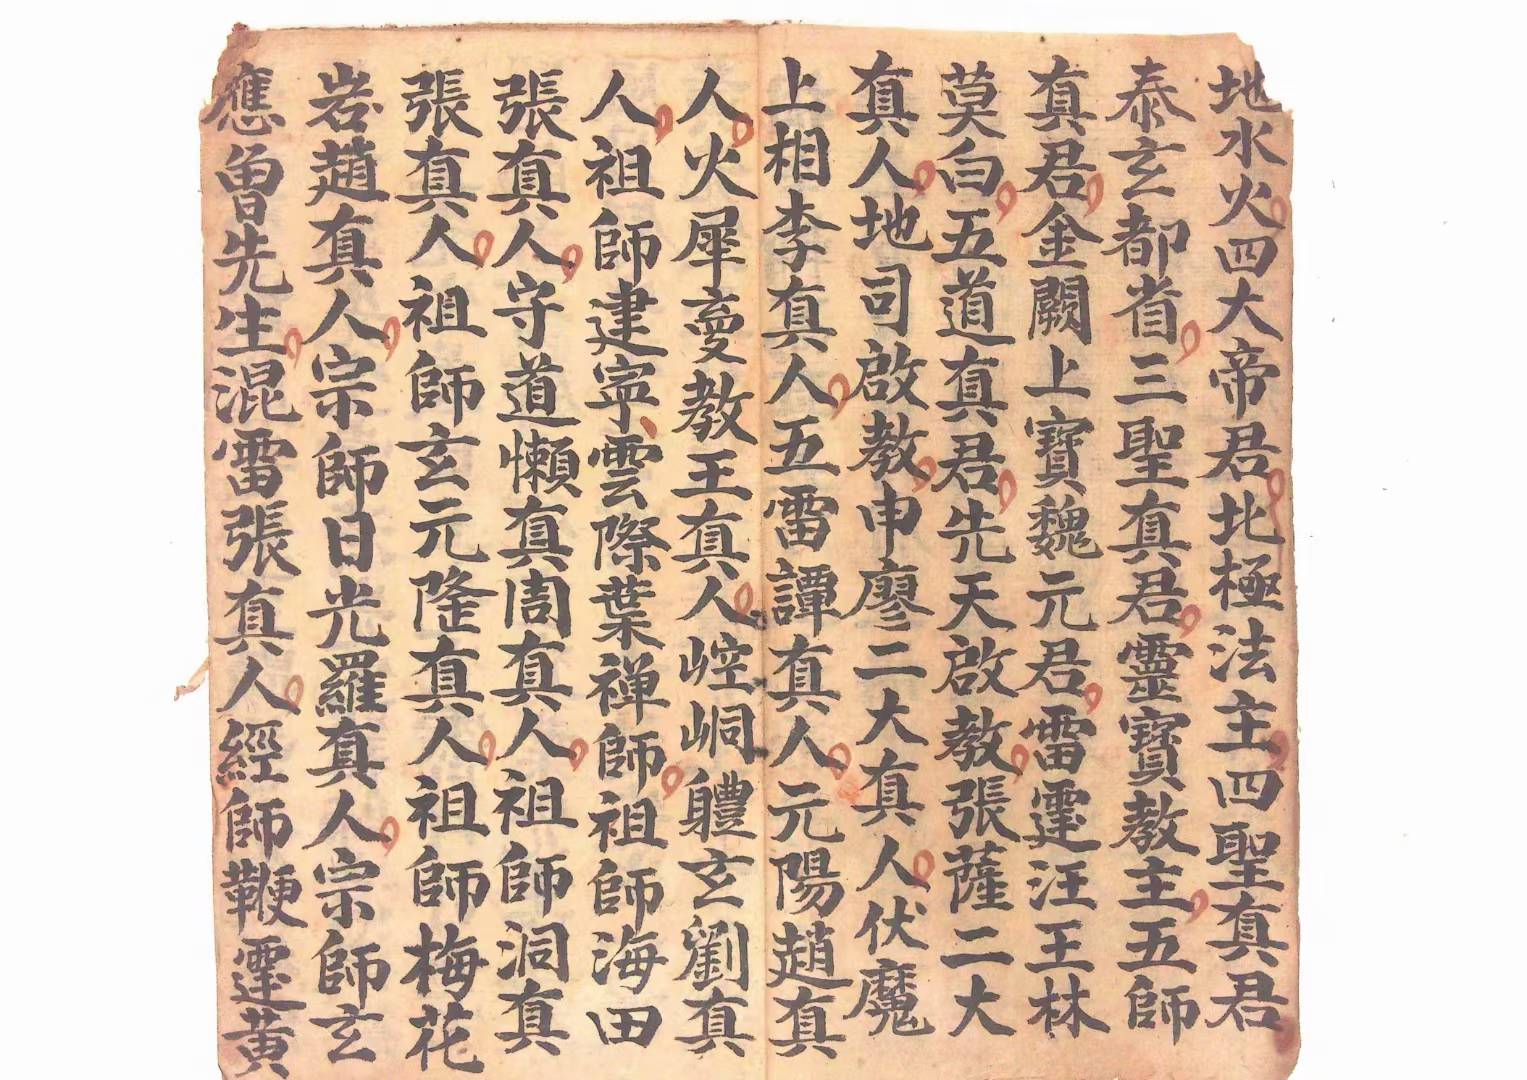 地水火四大帝君北極法主四聖真君
泰玄都省三聖真君靈寶教主五師
真君金闕上寶魏元君雷霆汪王林
莫白五道真君先天啟教張薩二大
真人地司啟教申廖二大真人伏魔
上相李真人五雷譚真人元陽趙真
人火犀教王真人崆峒軆玄劉真
人祖師建寧雲際葉禅師祖師海田
張真人守道懶真周真人祖師洞真
張真人祖師玄元隆真人祖師梅花
岩趙真人宗師日光羅真人宗師玄
應曾先生混雷張真人經師鞭霆黃